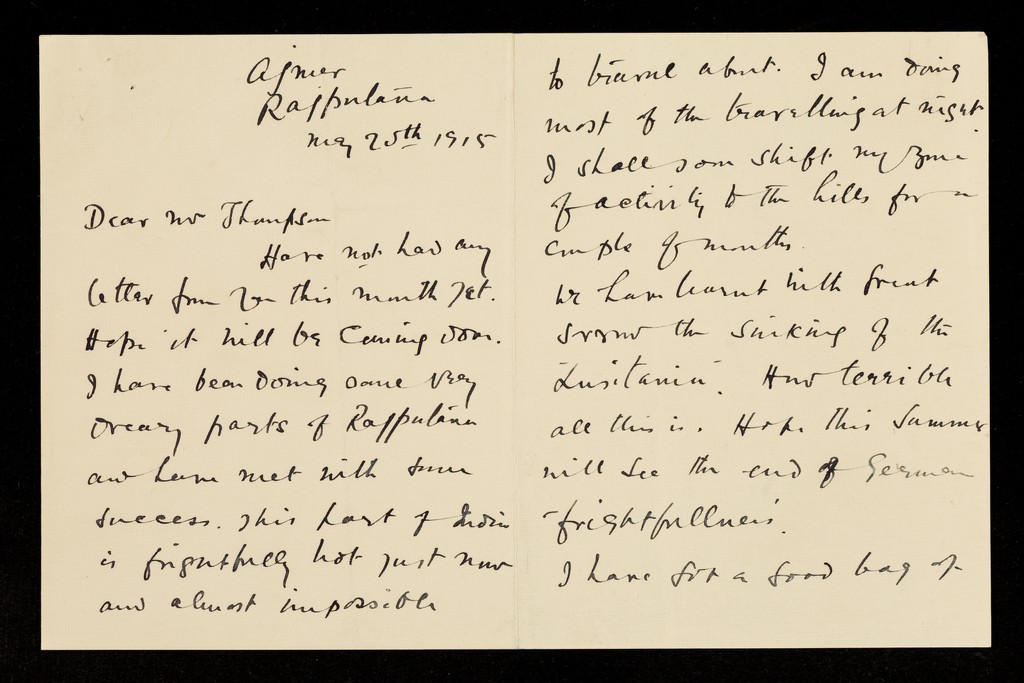 Ajmer
Rajputana
May 25th 1915
Dear Mr Thompson
Have not had any
letter from you this month yet.
Hope it will be coming soon.
I have been doing some very
dreary parts of Rajputana
and have met with some
success. This part of India
is frightfully hot just now
and almost impossible
to travel about. I am doing
most of the travelling at night.
I shall soon shift my zone
of activity to the hills for a
couple of months.
We have learnt with great
sorrow the sinking of the
Lusitania. How terrible
all this is. Hope this summer
will see the end of German
frightfullness.
I have got a good bag of